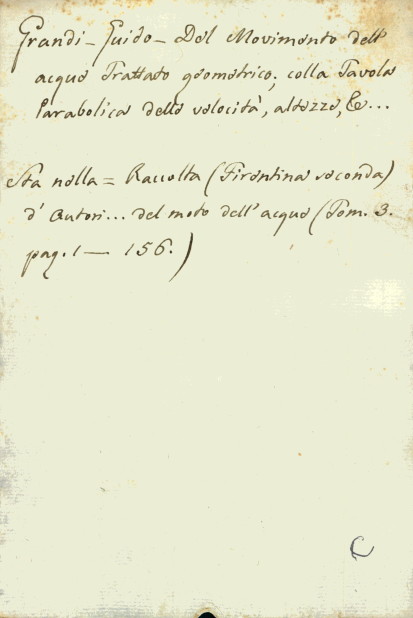 Grandi - Guido - Del Movimento dell'
acque Trattato geometrico; colla Tavola
Parabolica delle velocità, altezze, &...
Sta nella = Raccolta (Fiorentina seconda)
d' Autori... del moto dell'acque (Tom. 3.
pag. 1 — 156.)
C